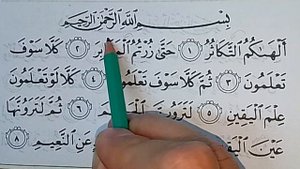 بِسْمِ اللَّهِ الرَّحْمَٰنِ الرَّحِيمِ
أَلْهَىٰكُمُ التَّكَاثُرُ ١ حَتَّىٰ زُرْتُمُ ٢ كَلَّا سَوْفَ
تَعْلَمُونَ ٣ ثُمَّ كَلَّا سَوْفَ تَعْلَمُونَ كَلَّا لَوْ تَعْلَمُونَ
عِلْمَ الْيَقِينِ ٥ لَتَرَوُنَّ ٦ ثُمَّ لَتَرَوُنَّهَا
عَيْنَ الْيَقِينِ عَنِ النَّعِيمِ ٨